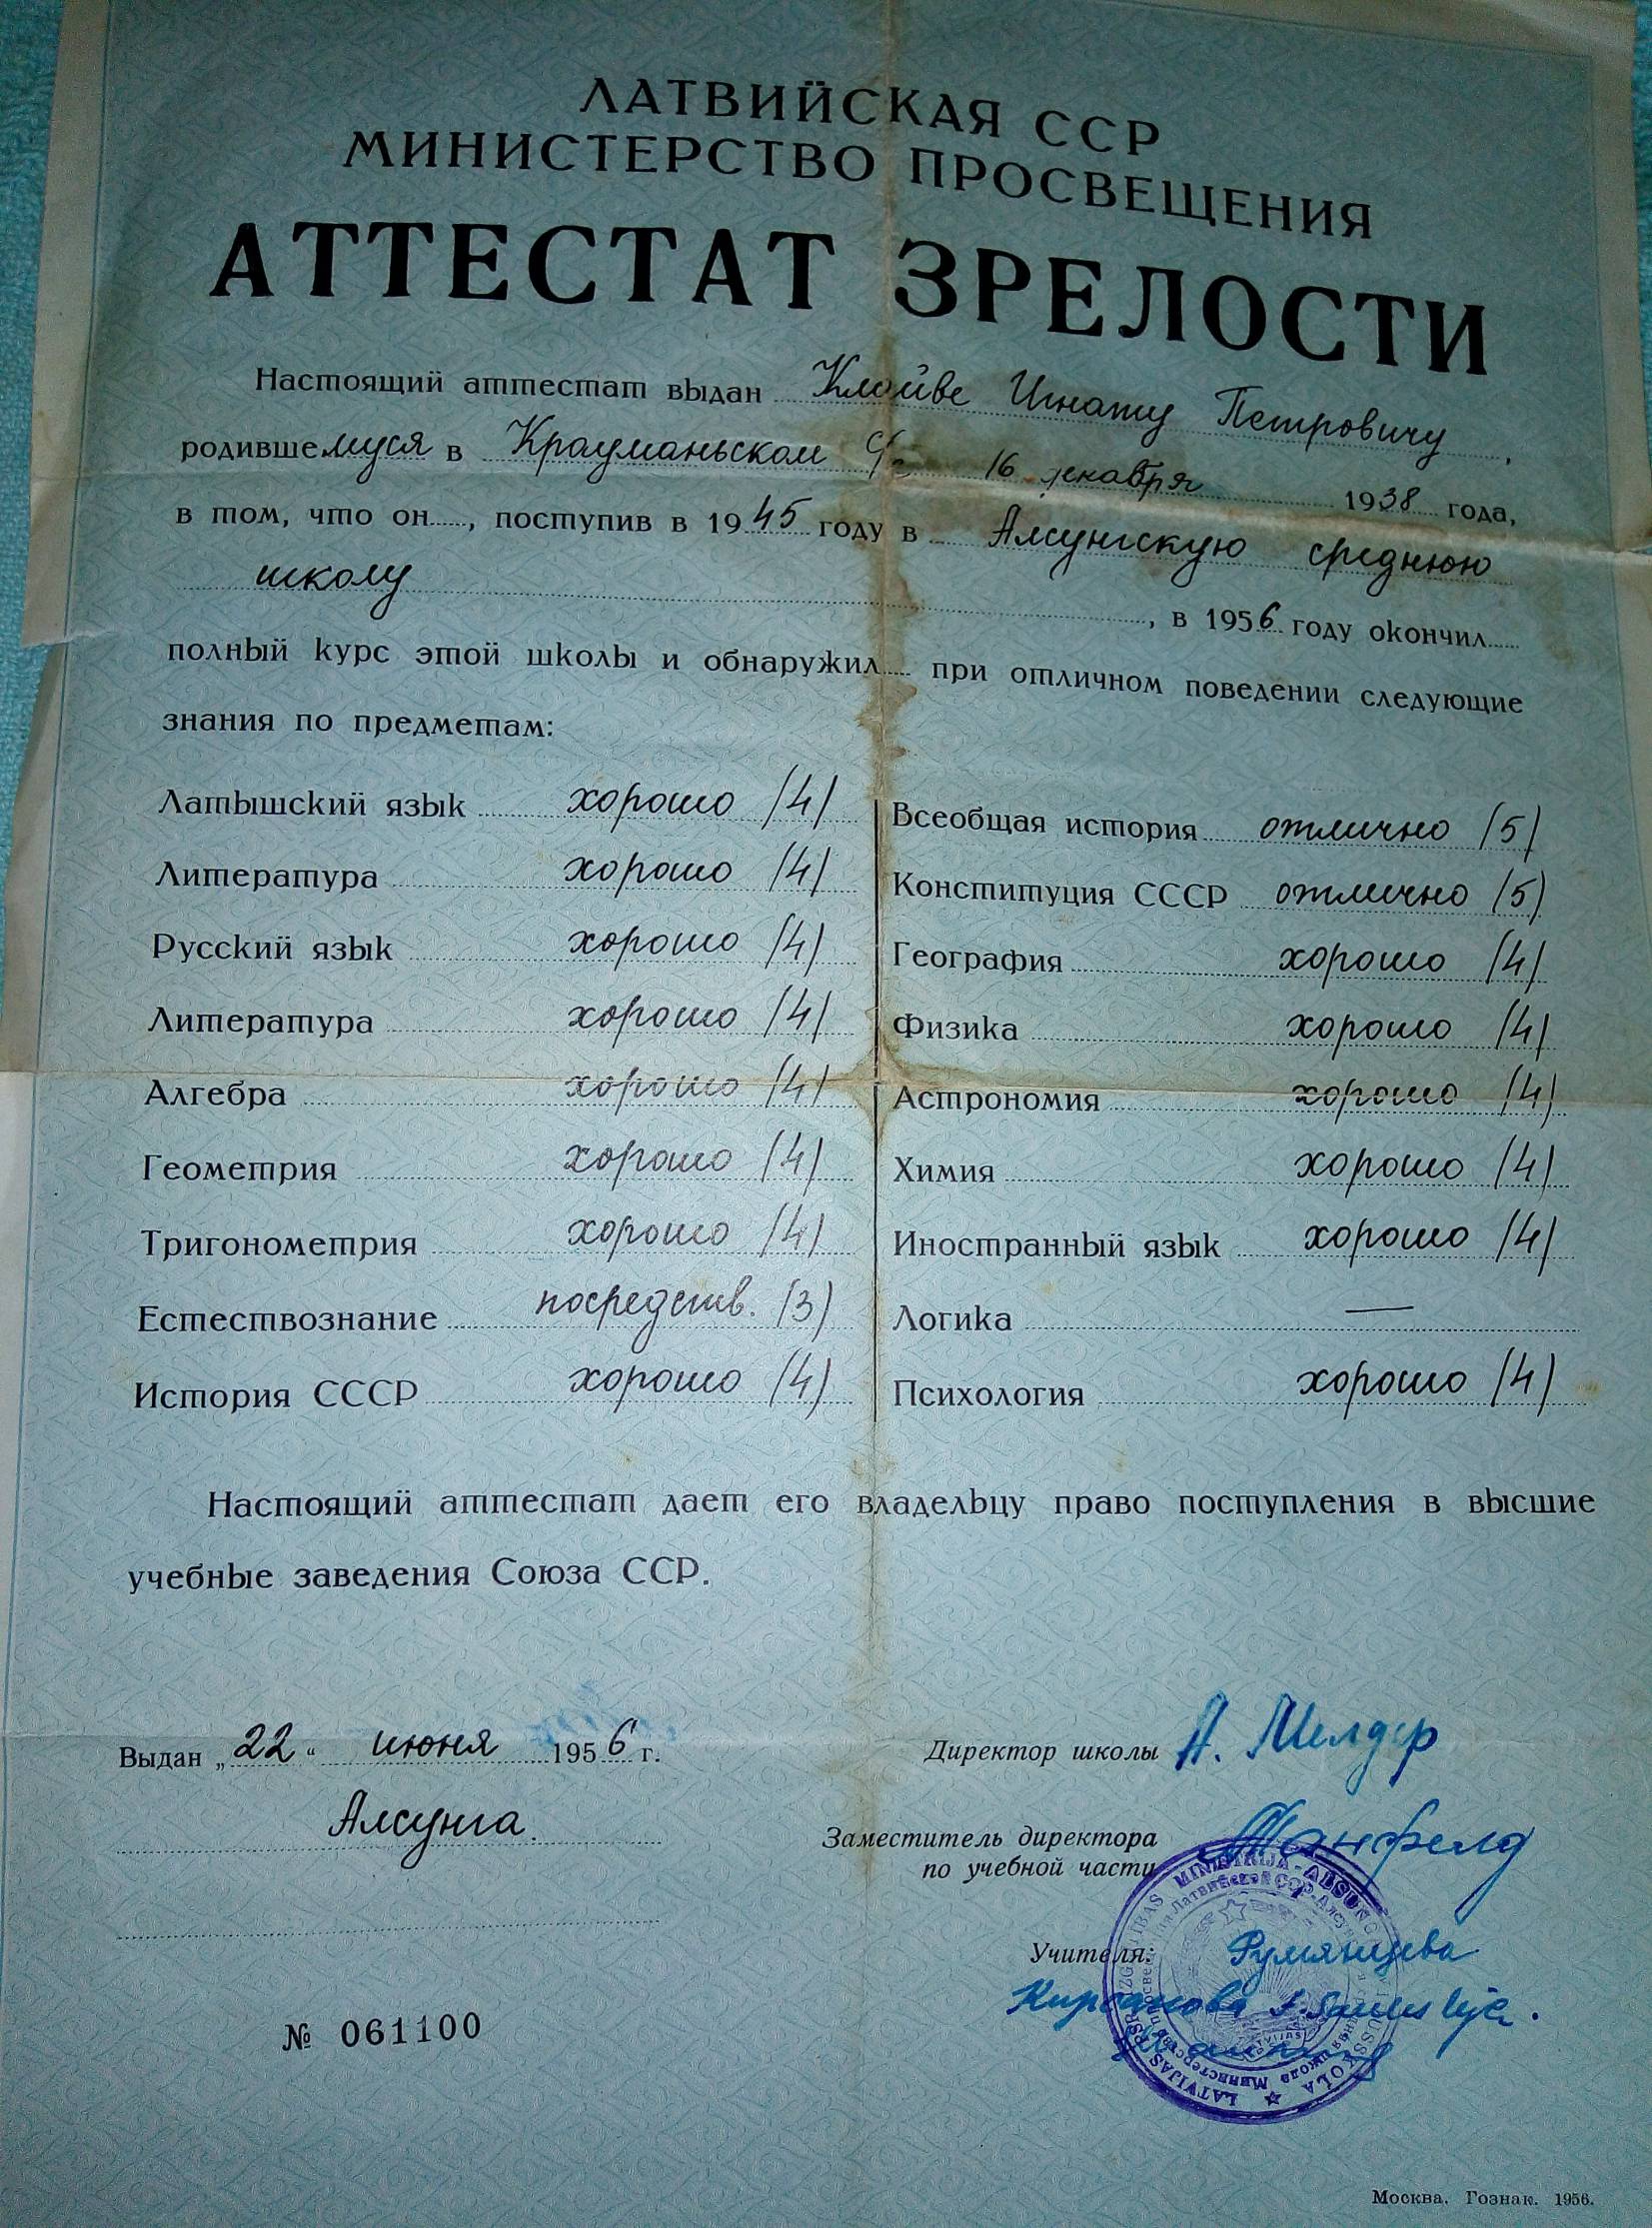 ЛАТВИЙСКАЯ ССР
МИНИСТЕРСТВО ПРОСВЕЩЕНИЯ
АТТЕСТАТ ЗРЕЛОСТИ
Настоящий аттестат выдан Клойве Игнату Петровичу,
родившемуся в 16 декабря 1938 года,
в том, что он, поступив в 1945 году в Алсунгскую среднюю
школу, в 1956 году окончил
полный курс этой школы и обнаружил при отличном поведении следующие
знания по предметам:
Латышский язык хорошо (4)
Литература хорошо (4)
Русский язык хорошо (4)
Литература хорошо (4)
Алгебра хорошо (4)
Геометрия хорошо (4)
Тригонометрия хорошо (4)
Естествознание посредств. (3)
История СССР хорошо (4)
Всеобщая история отлично (5)
Конституция СССР отлично (5)
География хорошо (4)
Физика хорошо (4)
Астрономия хорошо (4)
Химия хорошо (4)
Иностранный язык хорошо (4)
Логика —
Психология хорошо (4)
Настоящий аттестат дает его владельцу право поступления в высшие
учебные заведения Союза ССР.
Выдан „22“ июня 1956 г.
Алсунга.
№ 061100
Директор школы А. Мелдер
Заместитель директора
по учебной части
Учителя: Румянцева
Москва. Гознак. 1956.